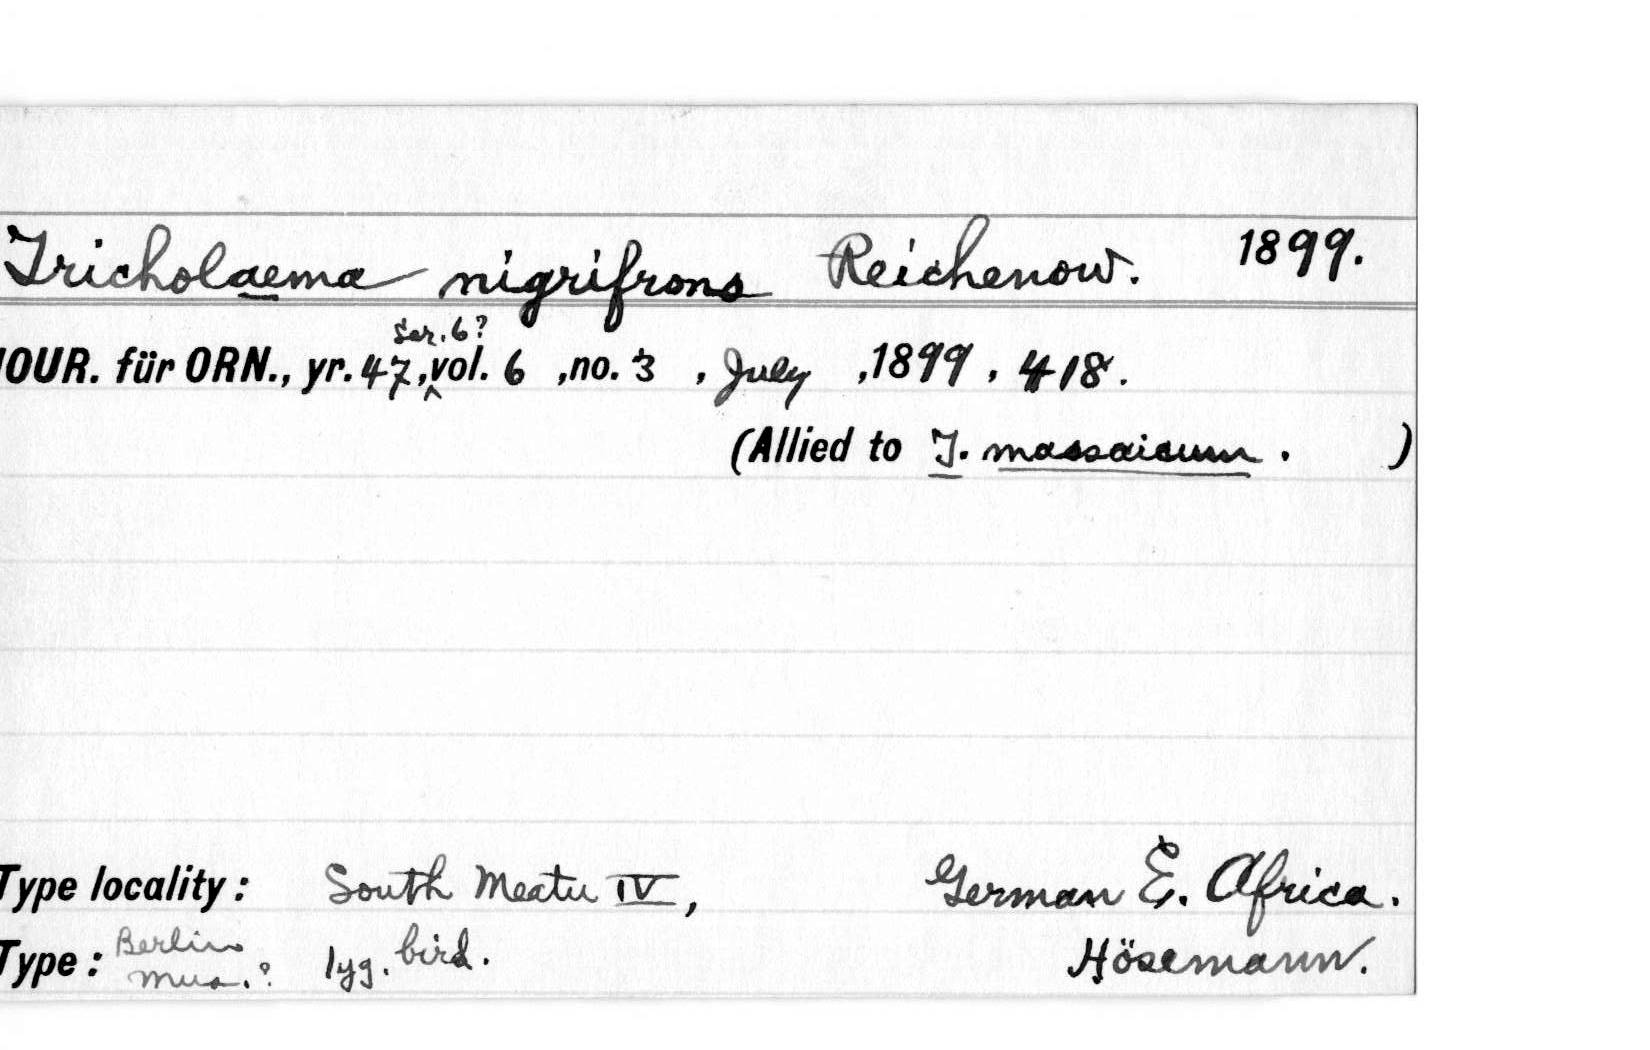 Tricholaema nigrifrons Reichenow. 1899.
Ser. 6?
JOUR. für ORN., yr. 47, vol. 6 , no. 3 , July , 1899 , 418.
(Allied to T. massaicum . )
Type locality : South Meatu IV, German E. Africa.
Type : Berlin Mus. ? 1yg. bird. Hösemann.